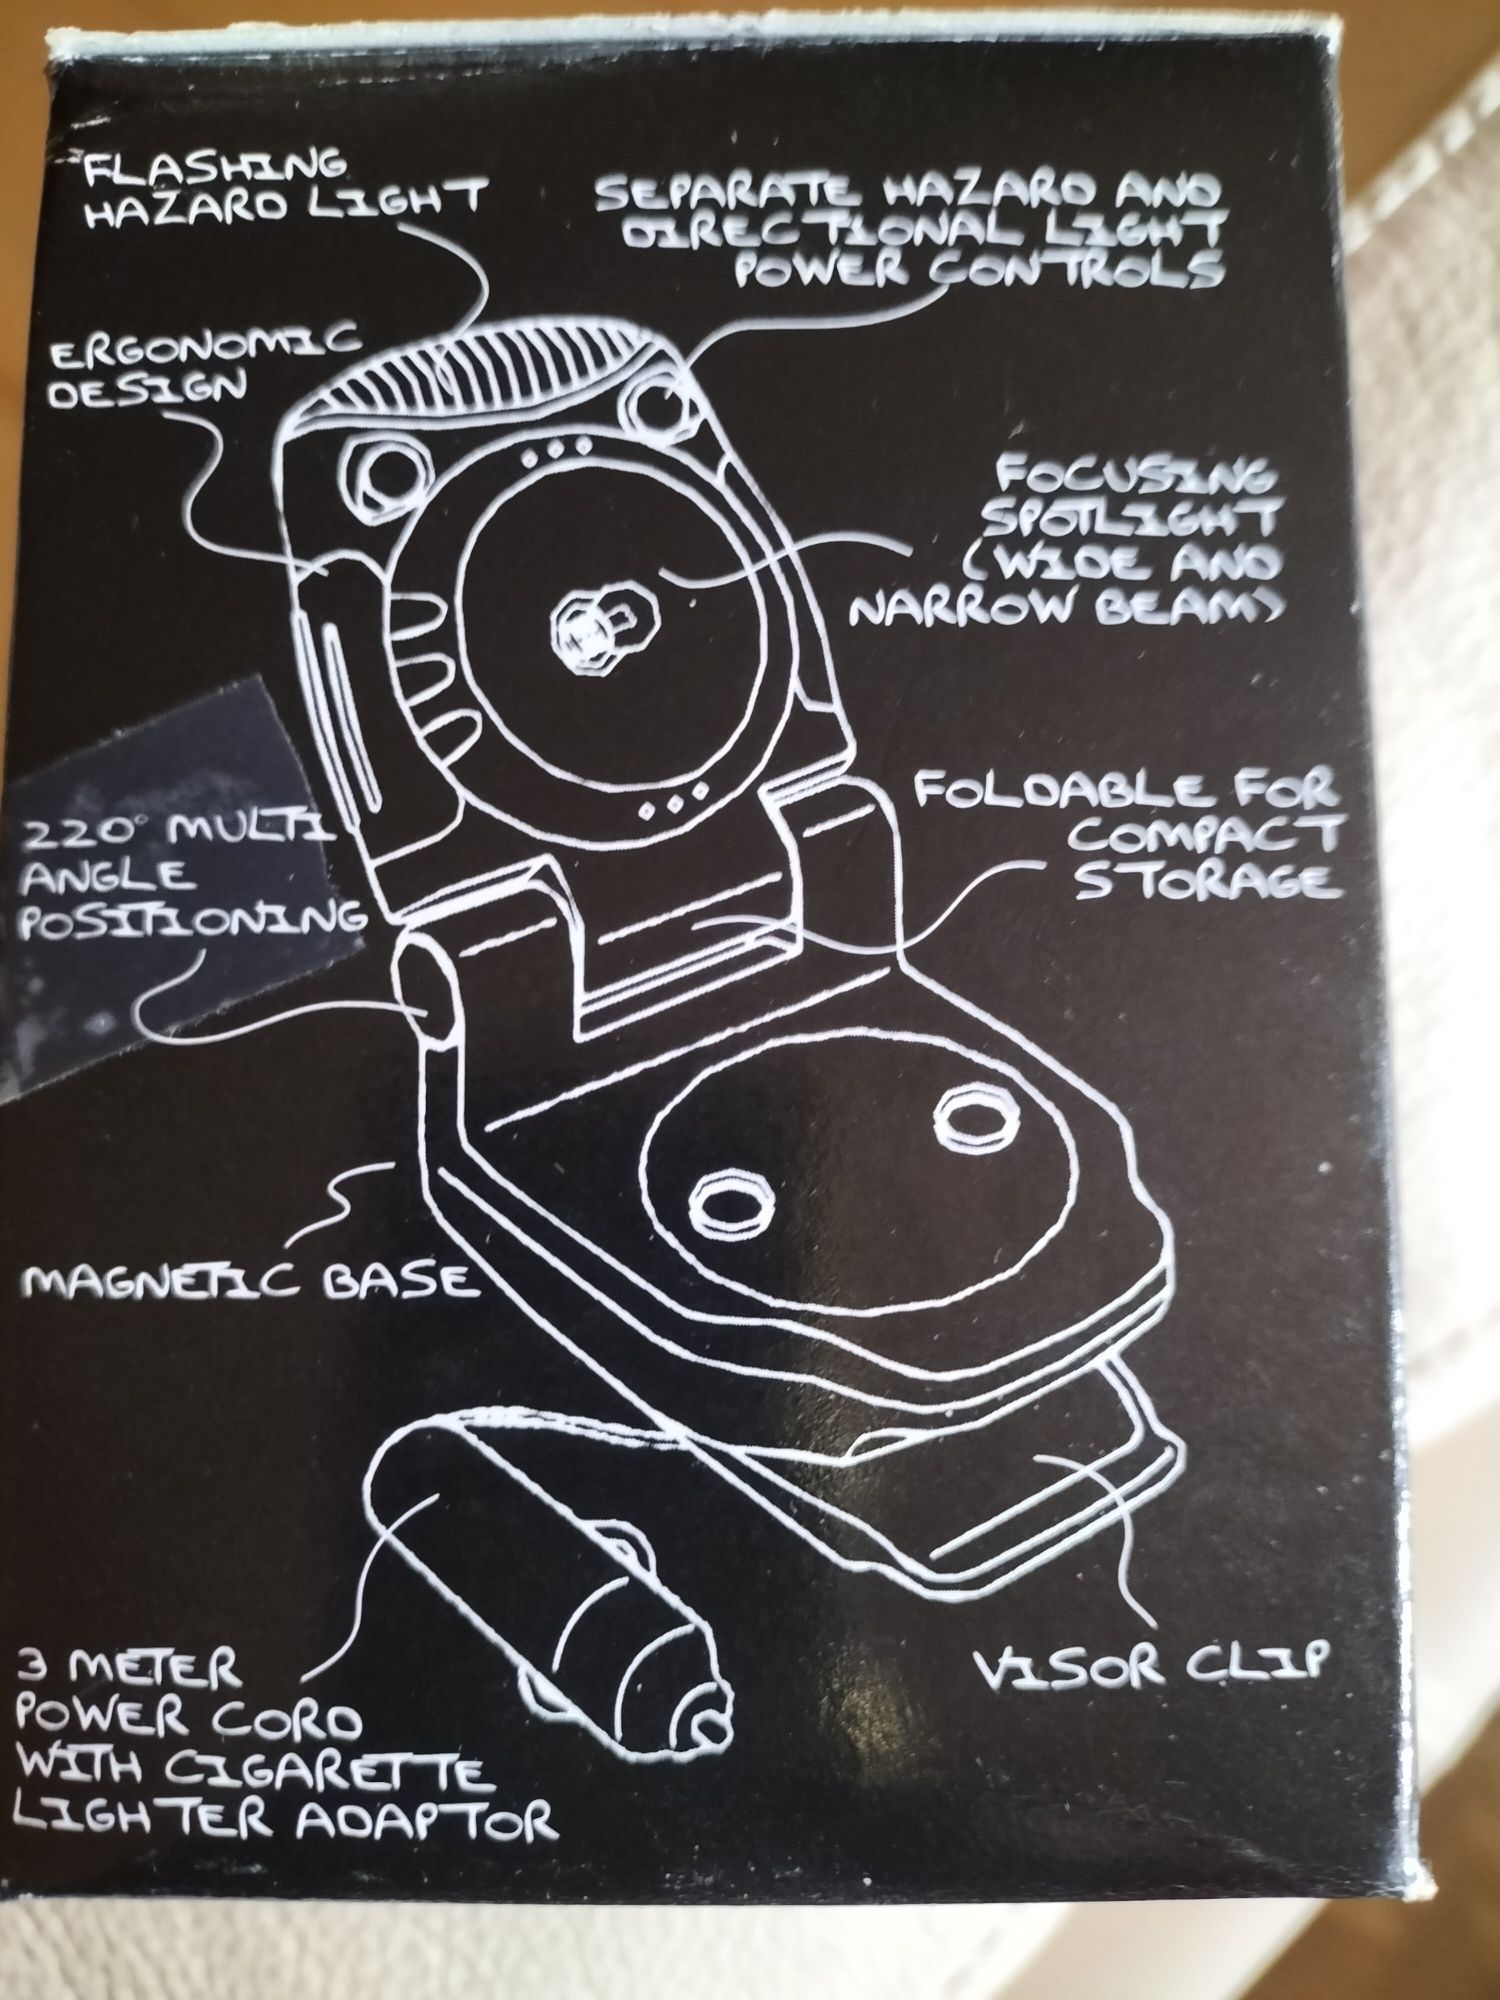 FLASHING
HAZARD LIGHT
SEPARATE HAZARD AND
DIRECTIONAL LIGHT
POWER CONTROLS
ERGONOMIC
DESIGN
FOCUSING
SPOTLIGHT
(WIDE AND
NARROW BEAM)
220° MULTI
ANGLE
POSITIONING
FOLDABLE FOR
COMPACT
STORAGE
MAGNETIC BASE
3 METER
POWER CORD
WITH CIGARETTE
LIGHTER ADAPTOR
VISOR CLIP